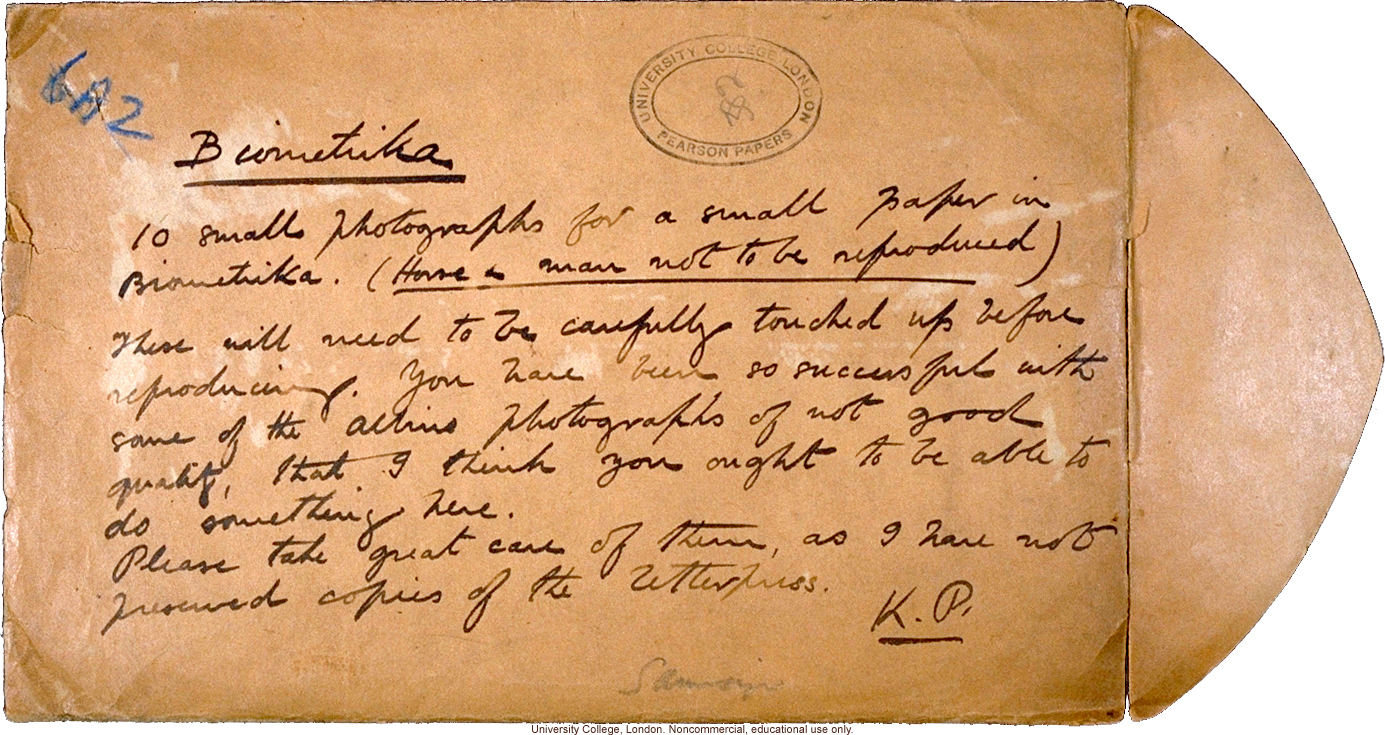 6A2
UNIVERSITY COLLEGE LONDON
PEARSON PAPERS
Biometrika
10 small photographs for a small paper in
Biometrika. (Horse & man not to be reproduced)
These will need to be carefully touched up before
reproducing. You have been so successful with
some of the albino photographs of not good
quality, that I think you ought to be able to
do something here.
Please take great care of them, as I have not
preserved copies of the letterpress.
K.P.
University College, London. Noncommercial, educational use only.